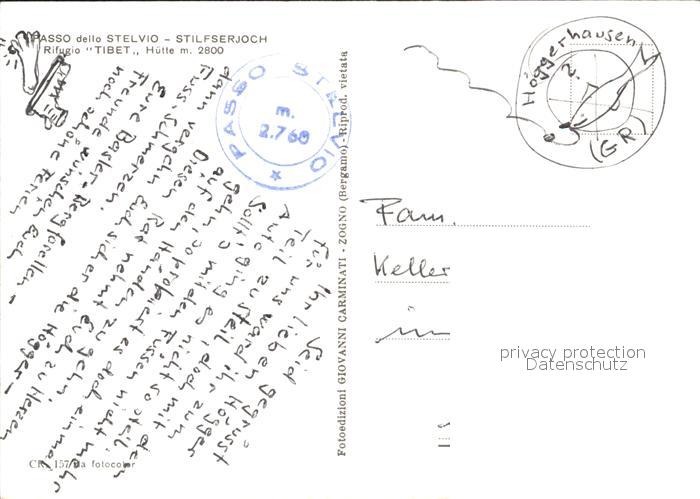 PASSO dello STELVIO - STILFSERJOCH
Rifugio "TIBET", Hütte m. 2800
PASSO STELVIO
m.
2.760
Höggerhausen
2.
(GR)
Seid gegrüsst
Ihr lieben Högger
für uns ward ihr zum
Teil zu steil, doch mit
Auto ging es nicht so
Sollt, mit den Füssen nicht mehr
gehn, so probiert es doch einmal
auf den Händen zu gehn!
Diesen Rat nehmt Euch zu Herzen
dann vergehn Euch sicher die
Fuss-Schmerzen.
Eure Basler-Bergforellen -
Freunde wünschen Euch
noch schöne Ferien
Fam.
Keller
im
privacy protection
Datenschutz
Fotoedizioni GIOVANNI CARMINATI - ZOGNO (Bergamo) - Riprod. vietata
CR. 157 da fotocolor